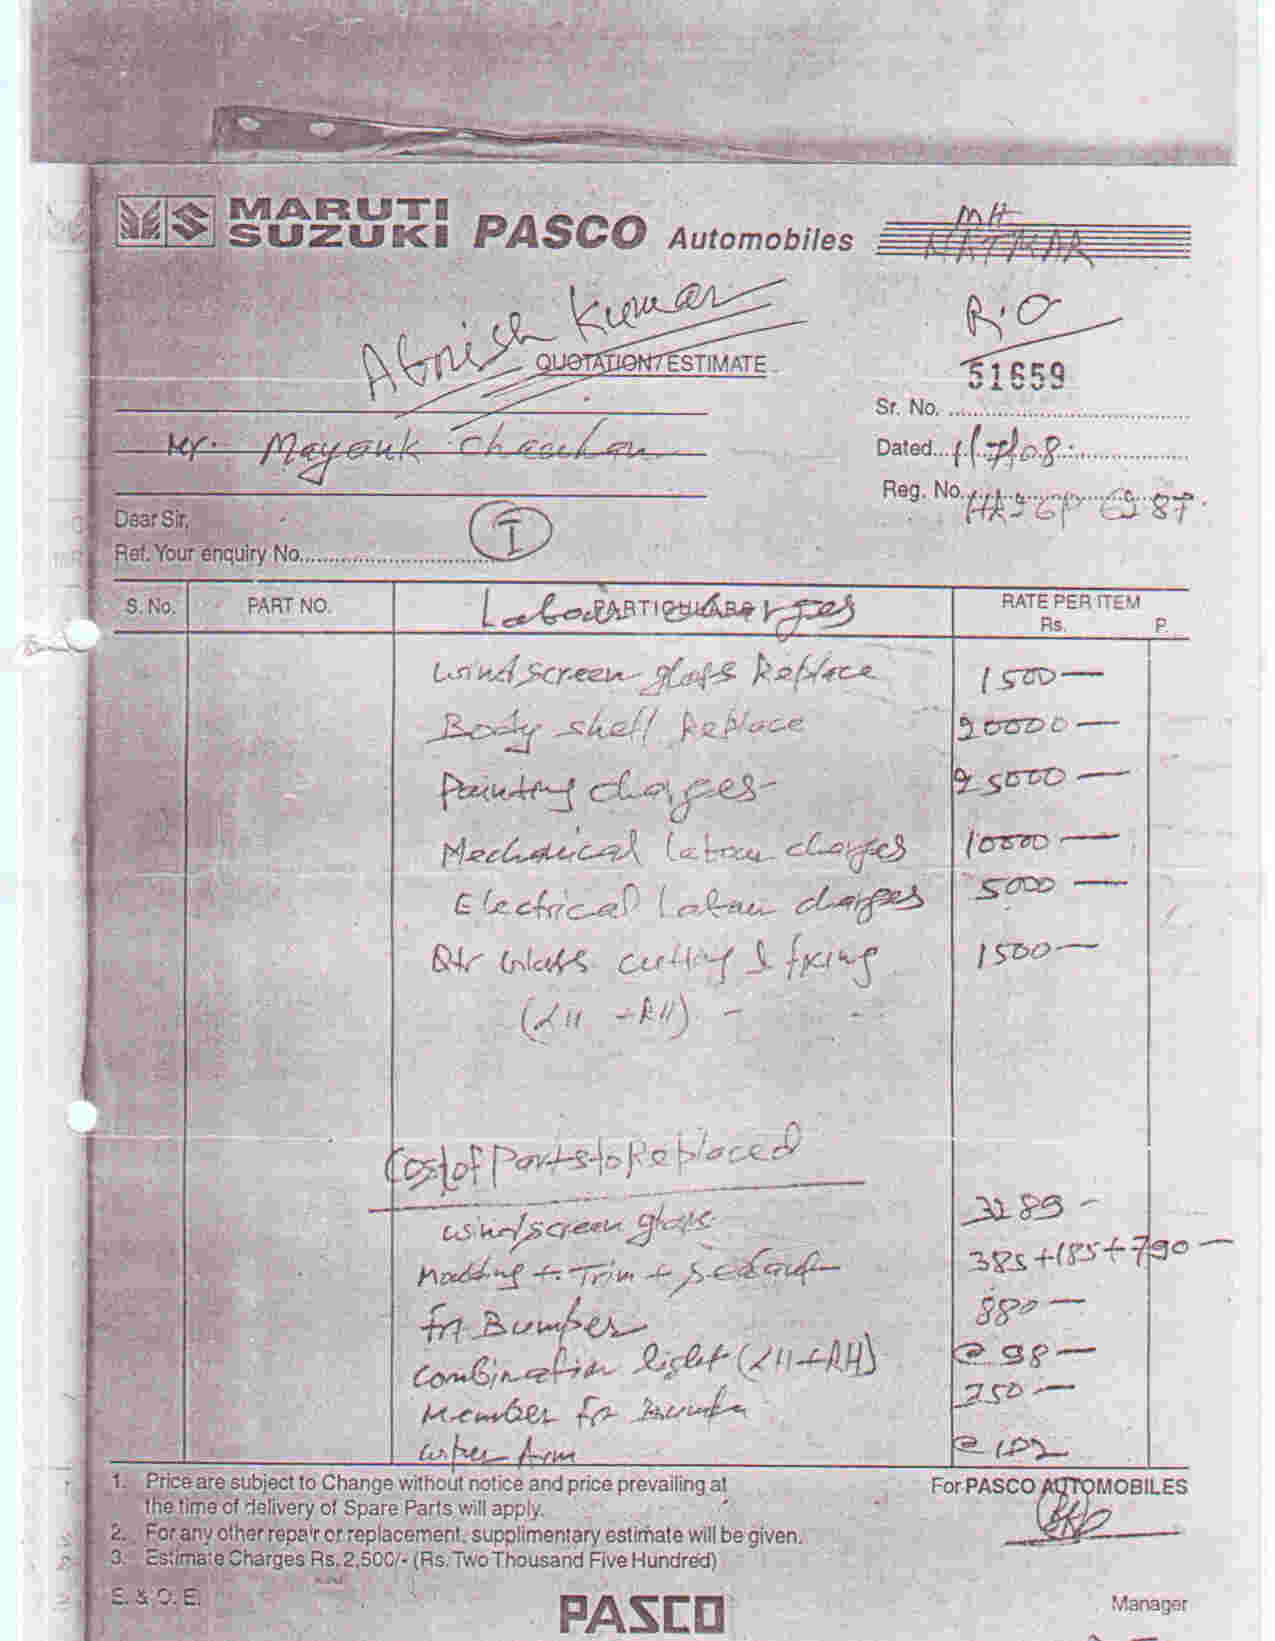 MARUTI
SUZUKI PASCO Automobiles
MH
Abnish Kumar
R.O
QUOTATION / ESTIMATE
51659
Sr. No.
Mr. Mayank Chauhan
Dated
Reg. No.
Dear Sir,
Ref. Your enquiry No. I
S. No. PART NO. PARTICULARS RATE PER ITEM
Rs. P.
Labour charges
windscreen glass Replace 1500 —
Body shell Replace 20000 —
Painting charges 25000 —
Mechanical labour charges 10000 —
Electrical labour charges 5000 —
Qtr Glass cutting & fixing 1500 —
(LH + RH) -
Cost of Parts to Replaced
windscreen glass 3289 -
Moulding + Trim + 385 + 185 + 790 —
Fr Bumper 880 —
Combination light (LH + RH) @ 98 —
Member Fr Bumper 250 —
wiper Arm @ 102
1. Price are subject to Change without notice and price prevailing at
the time of delivery of Spare Parts will apply.
2. For any other repair or replacement, supplimentary estimate will be given.
3. Estimate Charges Rs. 2,500/- (Rs. Two Thousand Five Hundred)
For PASCO AUTOMOBILES
E. & O. E.
PASCO
Manager